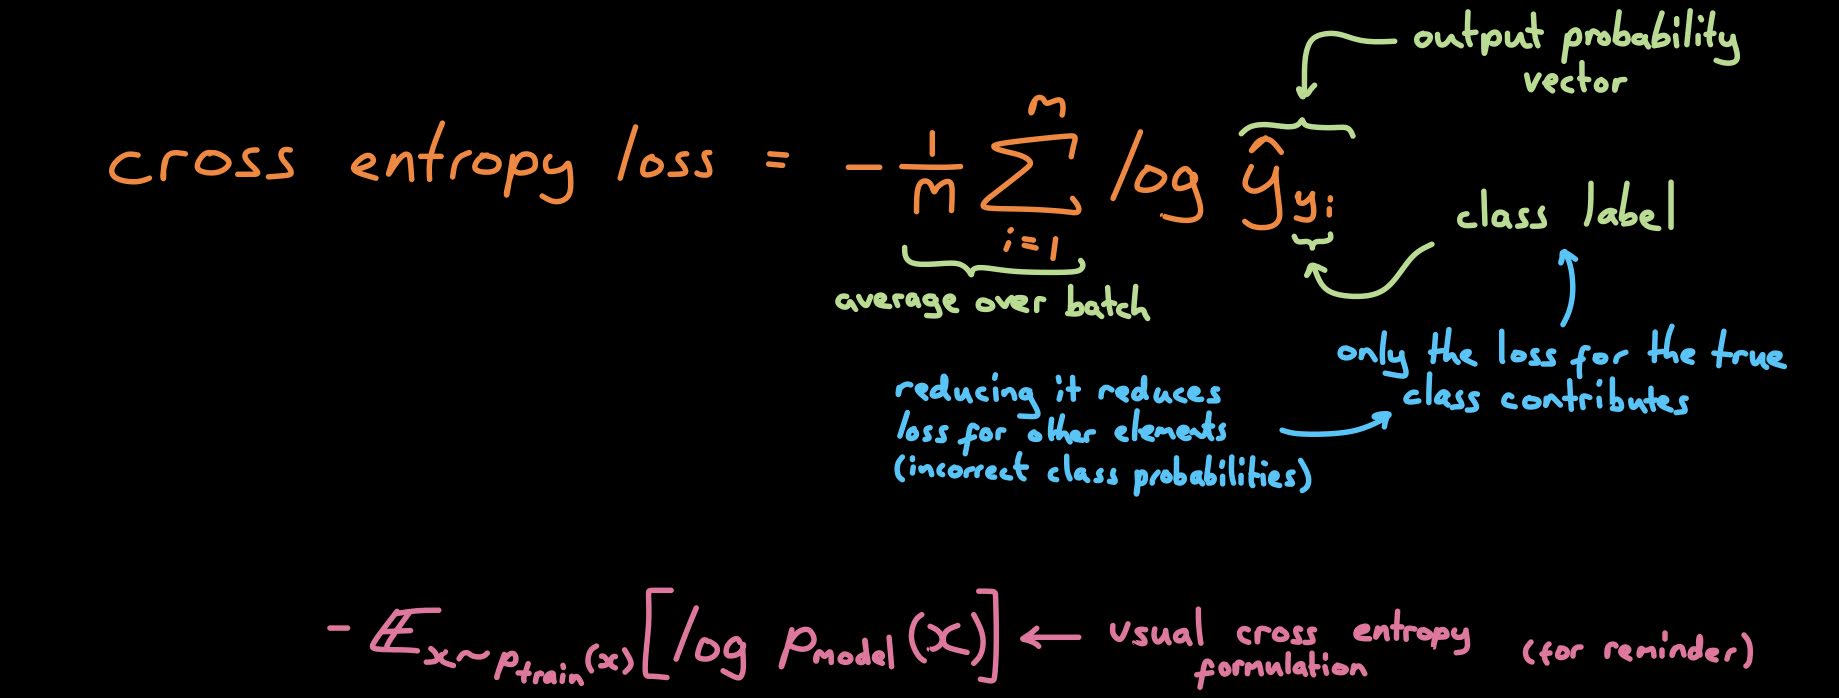 output probability
vector
cross entropy loss = - 1/m ∑_{i=1}^{m} log ŷ_{y_i}
class label
average over batch
only the loss for the true
class contributes
reducing it reduces
loss for other elements
(incorrect class probabilities)
- 𝔼_{x~p_train(x)} [log p_model(x)] ← usual cross entropy
formulation
(for reminder)